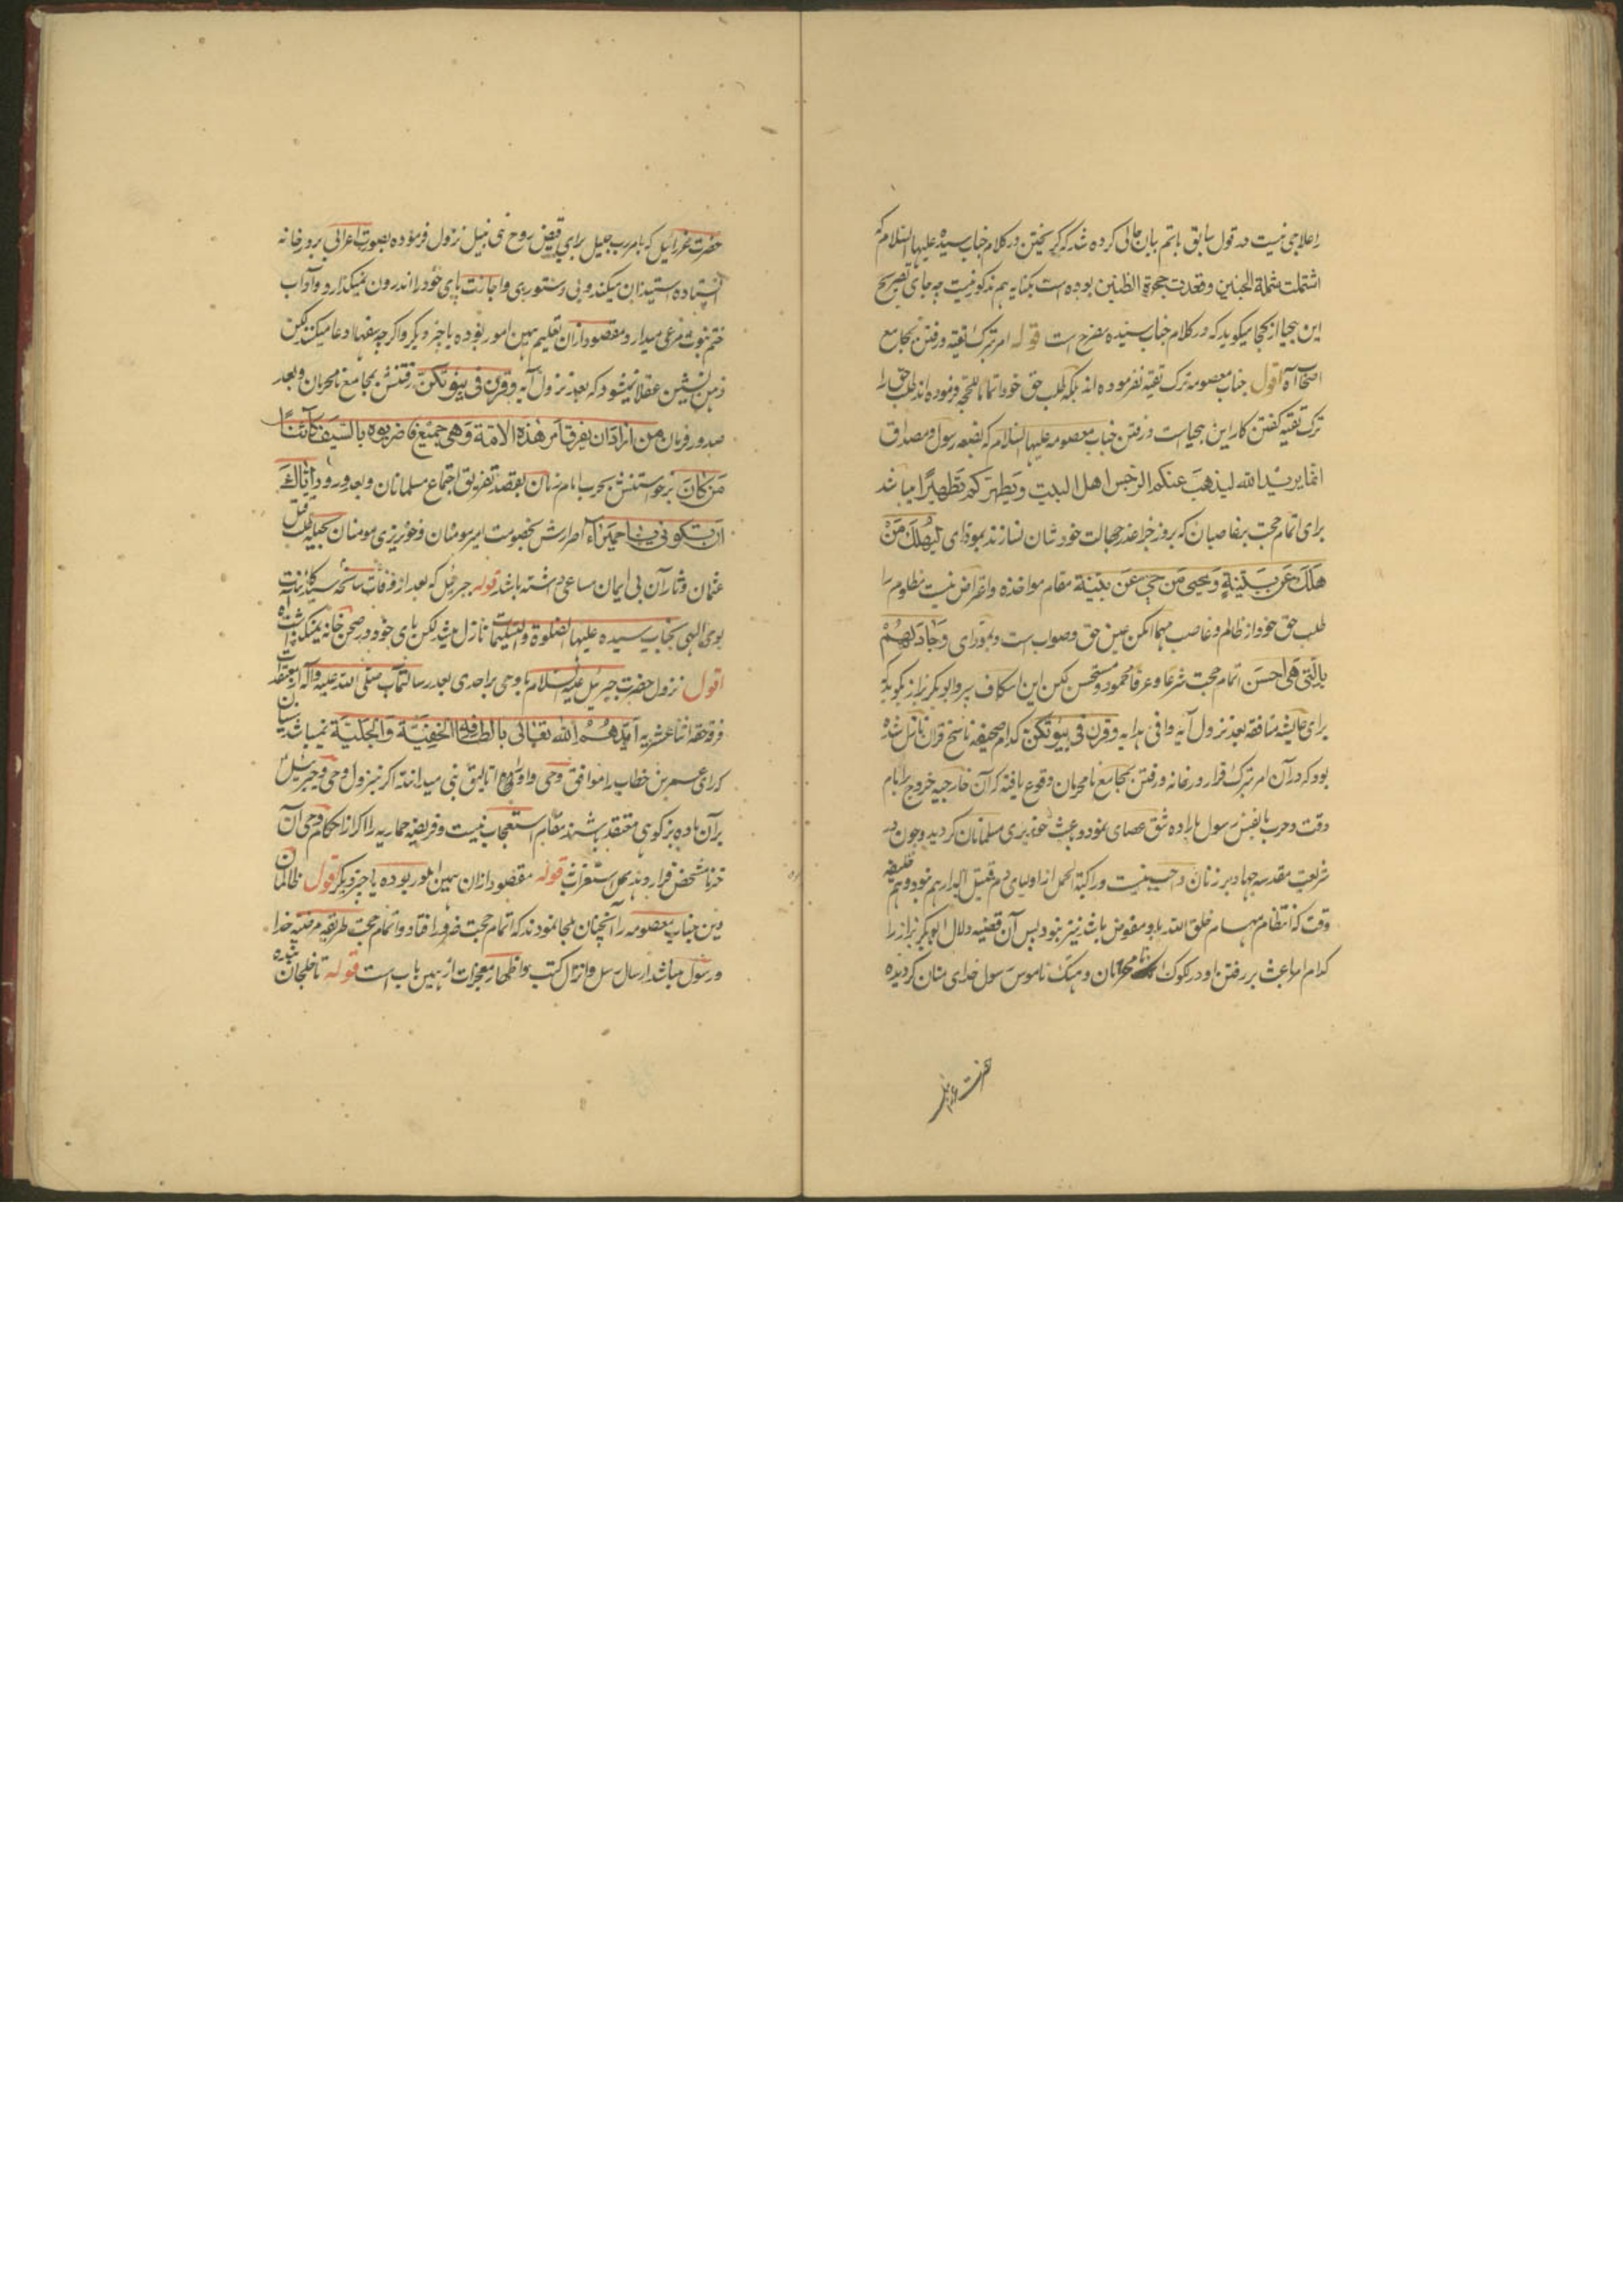 را علاجی نیست در قول سابق باتم بیان حالی کرده شد که گریختن در کلام جناب سیده علیها السلام که
اشتملت شملة الجنین وقعدت حجرة الظنین بوده است بکنایه هم مذکور نیست چه جای تصریح
این بیحیا از کجا میکوید که در کلام جناب سیده مصرح است قوله امر بترک تقیه ورفتن بمجامع
اصحاب آه اقول جناب معصومه ترک تقیه نفرموده اند بلکه طلب حق خود اتماما للحجة فرموده اند طلب حق را
ترک تقیه کفتن کار این بیحیاست ورفتن جناب معصومه علیها السلام که بضعه رسول ومصداق
انما یرید الله لیذهب عنکم الرجس اهل البیت ویطهرکم تطهیرا میباشند
برای اتمام حجت بر غاصبان که بروز جزا عذر جهالت خودشان نسازند بمودای لیهلک من
هلک عن بینة ویحیی من حی عن بینة مقام مواخذه واعتراض نیست مظلوم را
طلب حق خود از ظالم وغاصب مهما امکن عین حق وصواب است وبمودای وجادلهم
بالتی هی احسن اتمام حجت شرعا وعرفا محمود ومستحسن لکن این اسکاف پیرو ابوبکر بزاز بکوید که
برای عایشه منافقه بعد نزول آیه وافی هدایه وقرن فی بیوتکن کدام صحیفه ناسخ قران نازل شده
بود که در آن امر بترک قرار در خانه ورفتن بمجامع نامحرمان وقوع یافته که آن خارجیه خروج بر امام
وقت وحرب بانفس رسول باراده شق عصای نمود وباعث خونریزی مسلمانان کردید وچون در
شریعت مقدسه جهاد بر زنان واجب نیست وراکبة الجمل از اولیای دم قتیل الدار هم نبود وهم خلیفه
وقت که انتظام مهام خلق الله باو مفوض باشد نیز نبود پس آن قضیه دلال ابوبکر بزاز را
کدام امر باعث بر رفتن او در نامحرمان وهتک ناموس رسول خدای منان کردیده
حضرت عزرائیل
حضرت عزرائیل که بامر رب جلیل برای قبض روح نبی نبیل نزول فرموده بصورت اعرابی بر در خانه
استاده استیذان میکند وبی دستوری واجازت پای خود را اندرون نمیکذارد وآداب
ختم نبوت مرعی میدارد ومقصود ازان تعلیم همین امور بوده یا چیز دیکر واکرچه سفها ادعا میکنند لکن
ذهن نشین عقلا نمیشود که بعد نزول آیه وقرن فی بیوتکن رفتنش بمجامع نامحرمان وبعد
صدور فرمان من اراد ان یفرق امر هذه الامة وهی جمیع فاضربوه بالسیف کائنا
من کان برخواستنش بحرب امام زمان بقصد تفریق اجتماع مسلمانان وبعد ورود ایاک
ان تکونی یا حمیراء اصرارش بخصومت امیر مومنان وخونریزی مومنان بحیله طلب قتل
عثمان وثار آن بی ایمان مساعی داشته باشد قوله جبرئیل که بعد از وفات سید کائنات
بوی الهی بجناب سیده علیها الصلوة والتسلیمات نازل میشد لکن پای خود در صحن خانه نمیکذاشت آه
اقول نزول حضرت جبرئیل علیه السلام با وحی بر احدی بعد رسالتماب صلی الله علیه وآله از معتقدات
فرقه حقه اثنا عشریه ایدهم الله تعالی بالطافه الخفیة والجلیة نمیباشد سنیان
که رای عمر بن خطاب را موافق وحی واو را اتالیق نبی میدانند اکر بنزول وحی وجبرئیل
بر آن ماده بز کوهی معتقد باشند مقام استعجاب نیست وفریضه حماریه را اکر از احکام وحی آن
خر نامشخص قرار دهند محل استغراب نه قوله مقصود ازان همین امور بوده یا چیز دیکر اقول ظالمان
دین جناب معصومه را آنچنان ملجا نمودند که اتمام حجت ضرور افتاد واتمام حجت طریقه مرضیه خدا
ورسول میباشد ارسال رسل وانزال کتب واظهار معجزات از همین باب است قوله تا خلجان شده